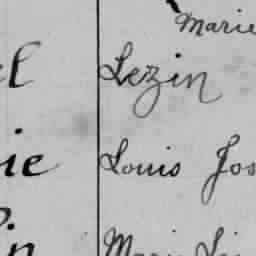 Marie
el Lezin
ie Louis Jos
in